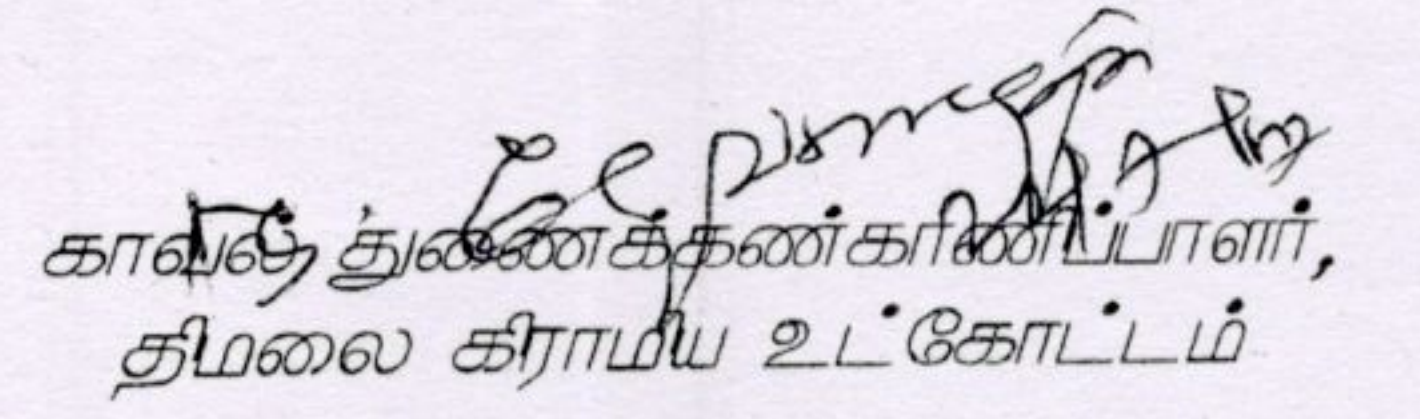 காவல் துணைக்கண்காணிப்பாளர்,
திமலை கிராமிய உட்கோட்டம்